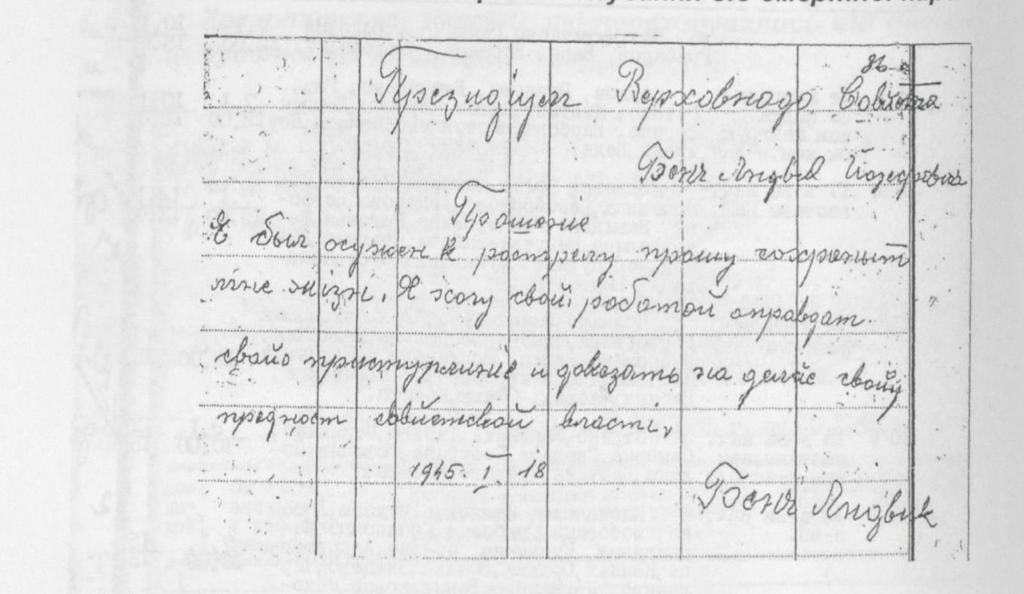 Президиум Верховнадо Совийета
Бенч Людвик Йозефович
Прошение
Я был осужен к растрелу прошу сохраныт
мне жізн. Я хочу свой работой оправдат
свойо приступление и доказать на делає свойу
предност совійетской власти.
1945. I. 18
Бенч Людвик